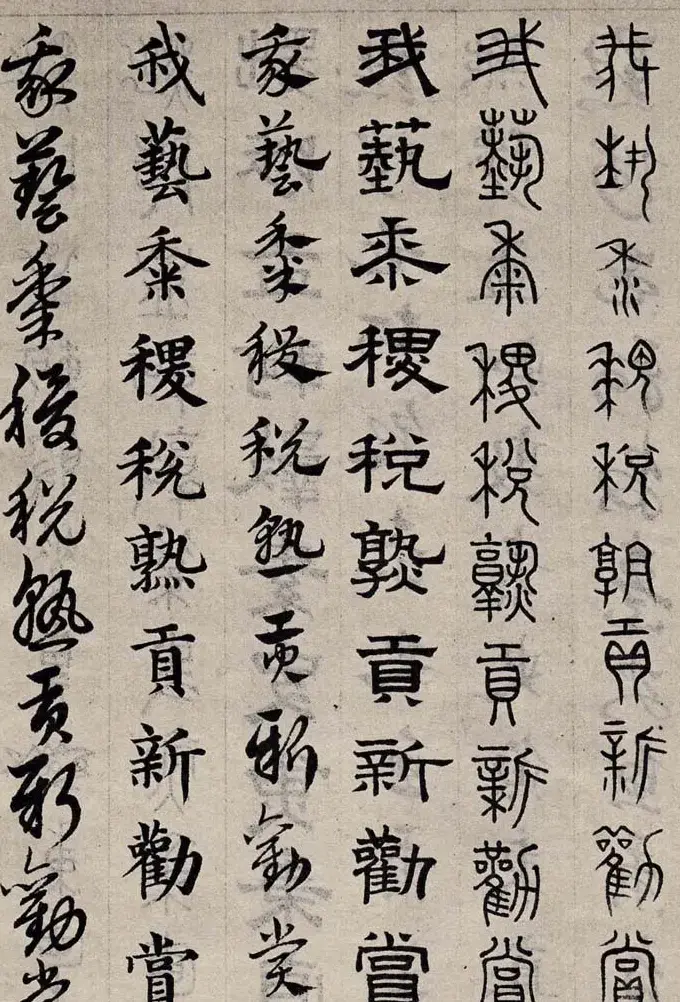 我藝黍稷税熟貢新勸賞
我藝黍稷税熟貢新勸賞
我藝黍稷税熟貢新勸賞
我藝黍稷税熟貢新勸賞
我藝黍稷税熟貢新勸賞
我藝黍稷税熟貢新勸賞